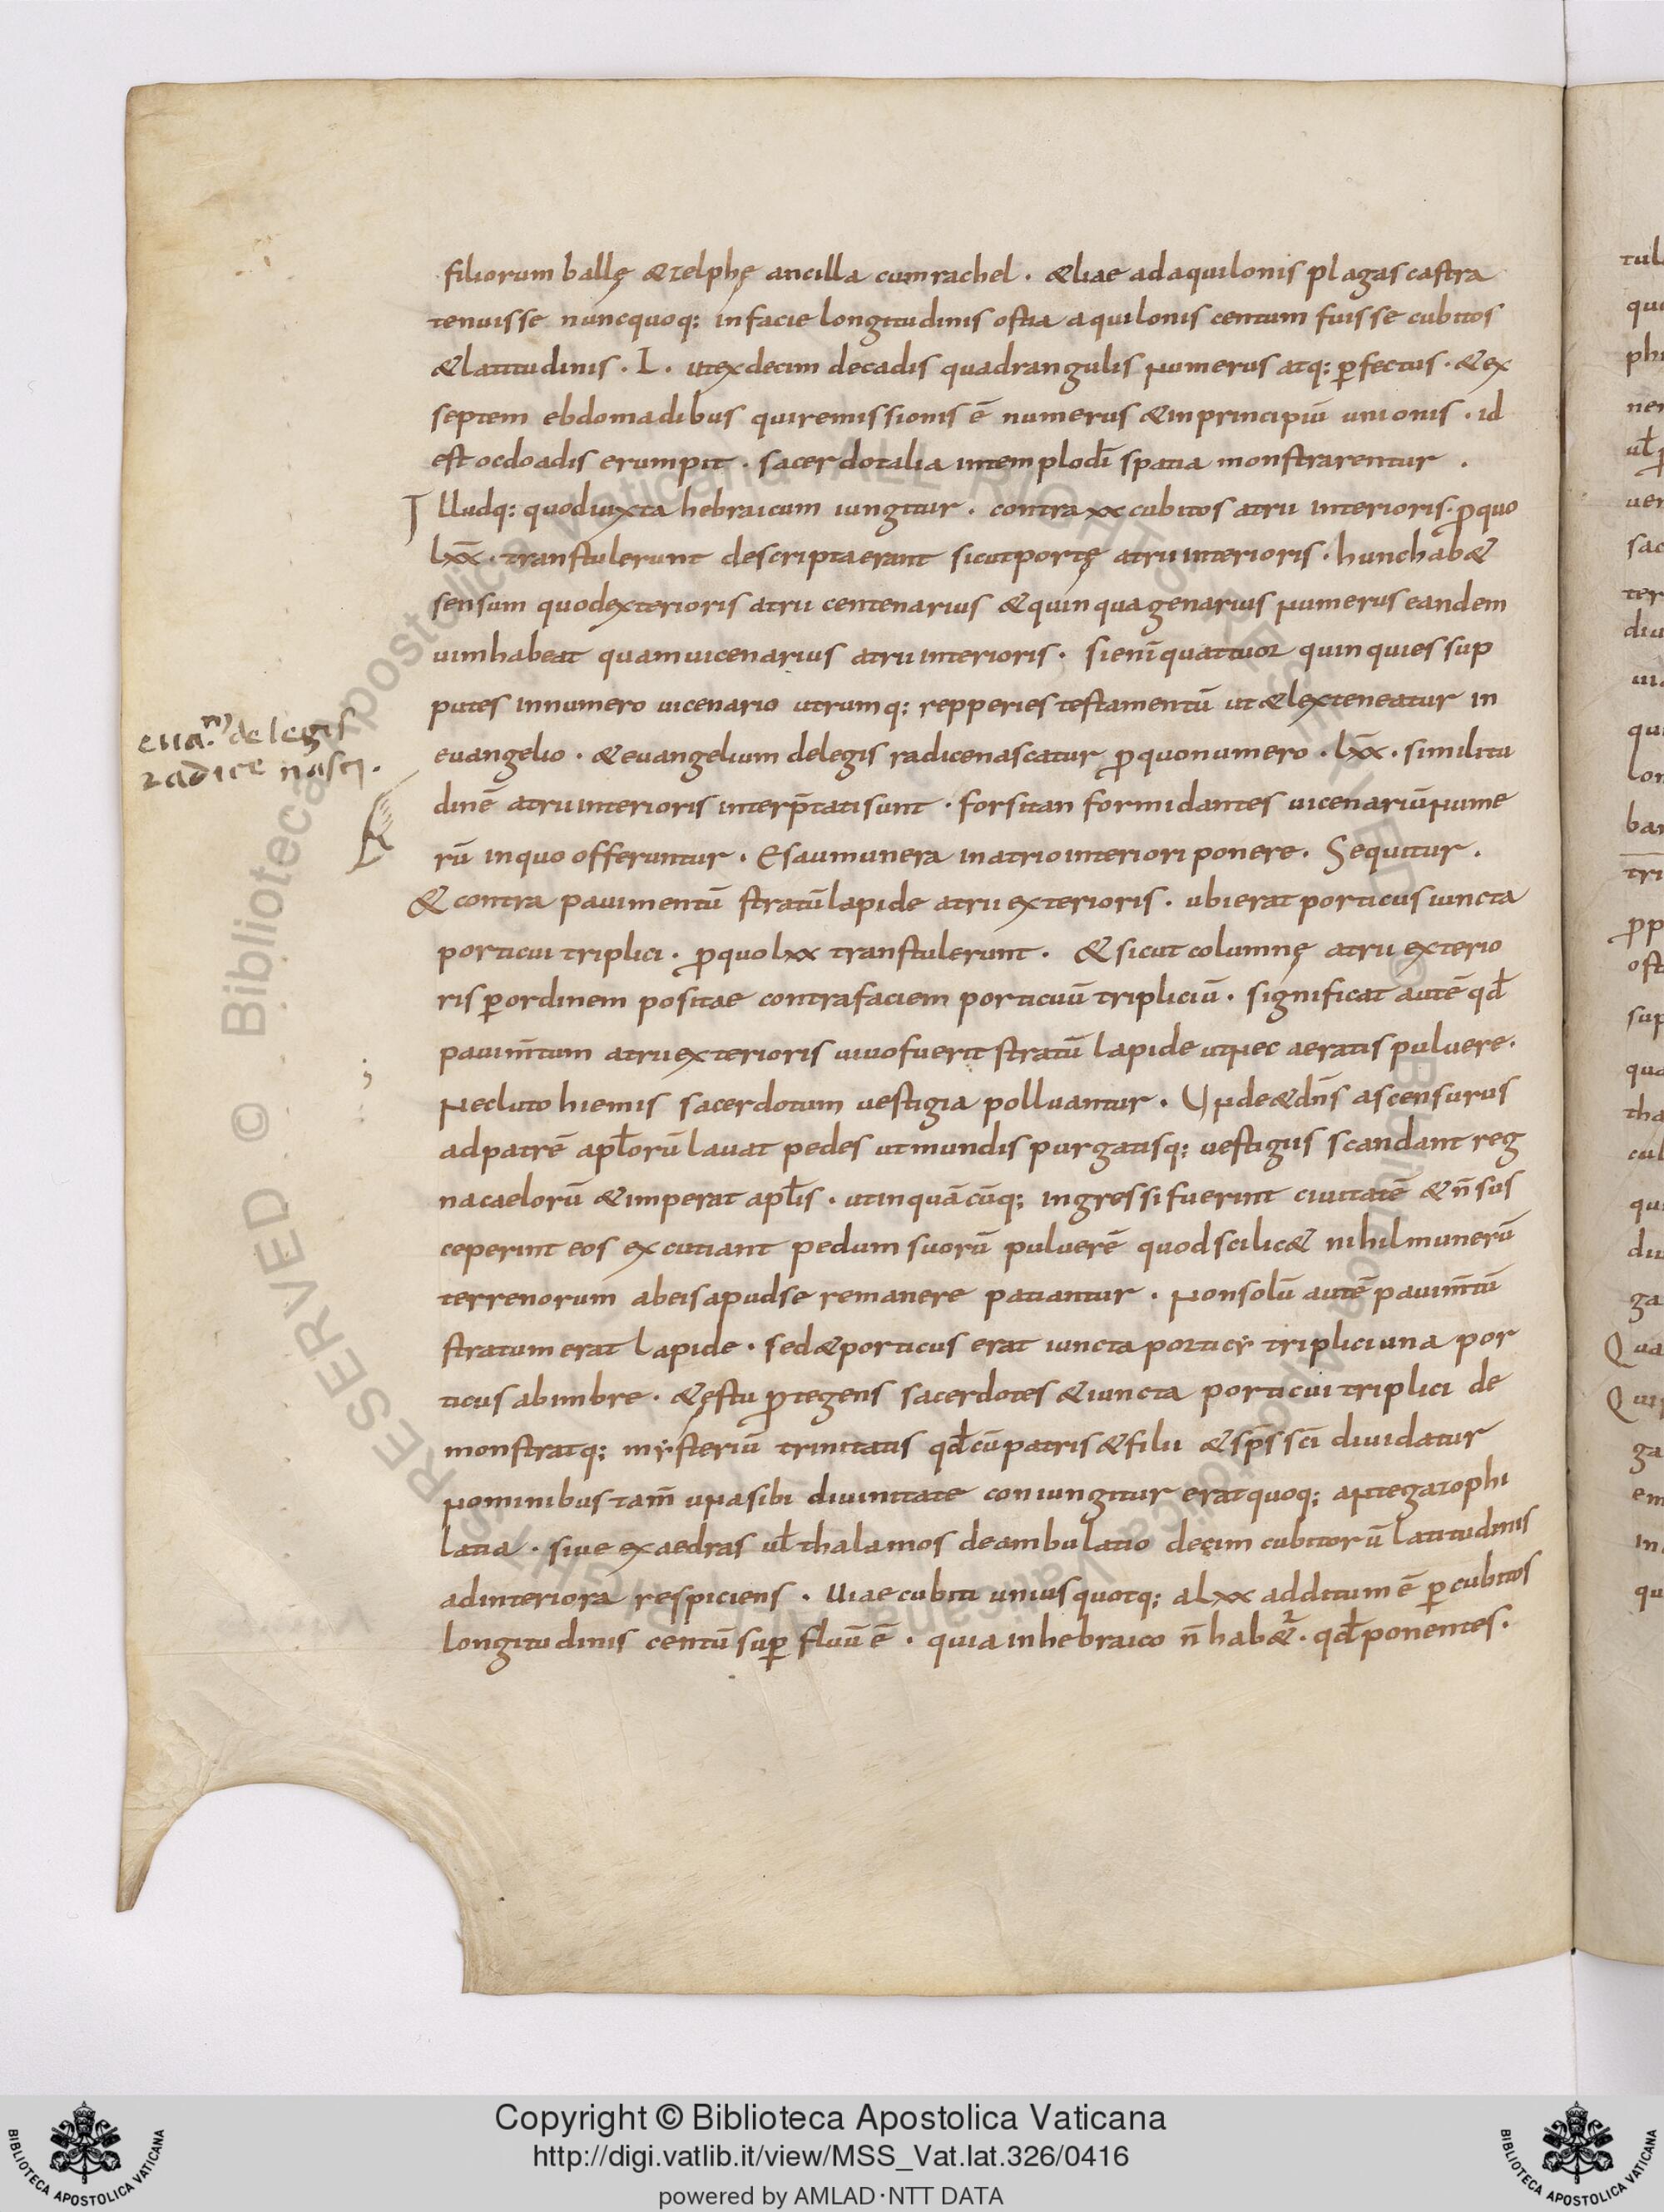 filiorum ballę & zelphę ancilla cum rachel . & liae ad aquilonis plagas castra
tenuisse nuncquoq; in facie longitudinis ostia aquilonis centum fuisse cubitos
& latitudinis . L . ut ex decim decadis quadrangulis numerus atq; p̄fectus . & ex
septem ebdomadibus qui remissionis ē numerus & in principiū unionis . id
est ocdoadis erumpit . sacerdotalia in templo dī spatia monstrarentur .
Illudq; quod iuxta hebraicum iungitur . contra xx cubitos atrii interioris . p̄ quo
lxx̄ . transtulerunt descripta erant sicut portę atrii interioris . hunc hab&
sensum quod exterioris atrii centenarius & quinquagenarius numerus eandem
uim habeat quam uicenarius atrii interioris . si enī quattuor quinquies sup
putes in numero uicenario utrumq; repperies testamentū ut & lex teneatur in
euangelio . & euangelium de legis radice nascatur p̄ quo numero . lxx̄ . similitu
dinē atrii interioris interp̄tati sunt . forsitan formidantes uicenariū nume
rū in quo offeruntur . Esau munera in atrio interiori ponere . Sequitur .
& contra pauimentū stratū lapide atrii exterioris . ubi erat porticus iuncta
porticui triplici . p̄ quo lxx transtulerunt . & sicut columnę atrii exterio
ris p̄ ordinem positae contra faciem porticuū tripliciū . significat autē qđ
pauim̄tum atrii exterioris uiuo fuerit stratū lapide ut nec aeratis puluere .
nec luto hiemis sacerdotum uestigia polluantur . Unde & dn̄s ascensurus
ad patrē apl̄orū lauat pedes ut mundis purgatisq; uestigiis scandant reg
na caelorū & imperat apl̄is . ut in quācūq; ingressi fuerint ciuitatē & n̄ sus
ceperint eos excutiant pedum suorū puluerē quod scilic& nihil munerū
terrenorum ab eis apud se remanere patiantur . non solū autē pauim̄tū
stratum erat lapide . sed & porticus erat iuncta porticẏ triplici una por
ticus ab imbre . & ęstu p̄tegens sacerdotes & iuncta porticui triplici de
monstratq; mẏsteriū trinitatis qđ cū patris & filii & sp̄s sc̄i diuidatur
nominibus tam̄ una sibi diuinitate coniungitur erat quoq; ante gazophi
latia . siue exaedras ul̄ thalamos deambulatio deçim cubitorū latitudinis
ad interiora respiciens . Uiae cubiti unius quotq; a lxx additum ē p̄ cubitos
longitudinis centū sup̄ fluū ē . quia in hebraico n̄ hab&̄ . qđ ponentes .
eua.m de legis
radice nasci .
Copyright © Biblioteca Apostolica Vaticana
http://digi.vatlib.it/view/MSS_Vat.lat.326/0416
powered by AMLAD·NTT DATA
BIBLIOTECA APOSTOLICA VATICANA
BIBLIOTECA APOSTOLICA VATICANA